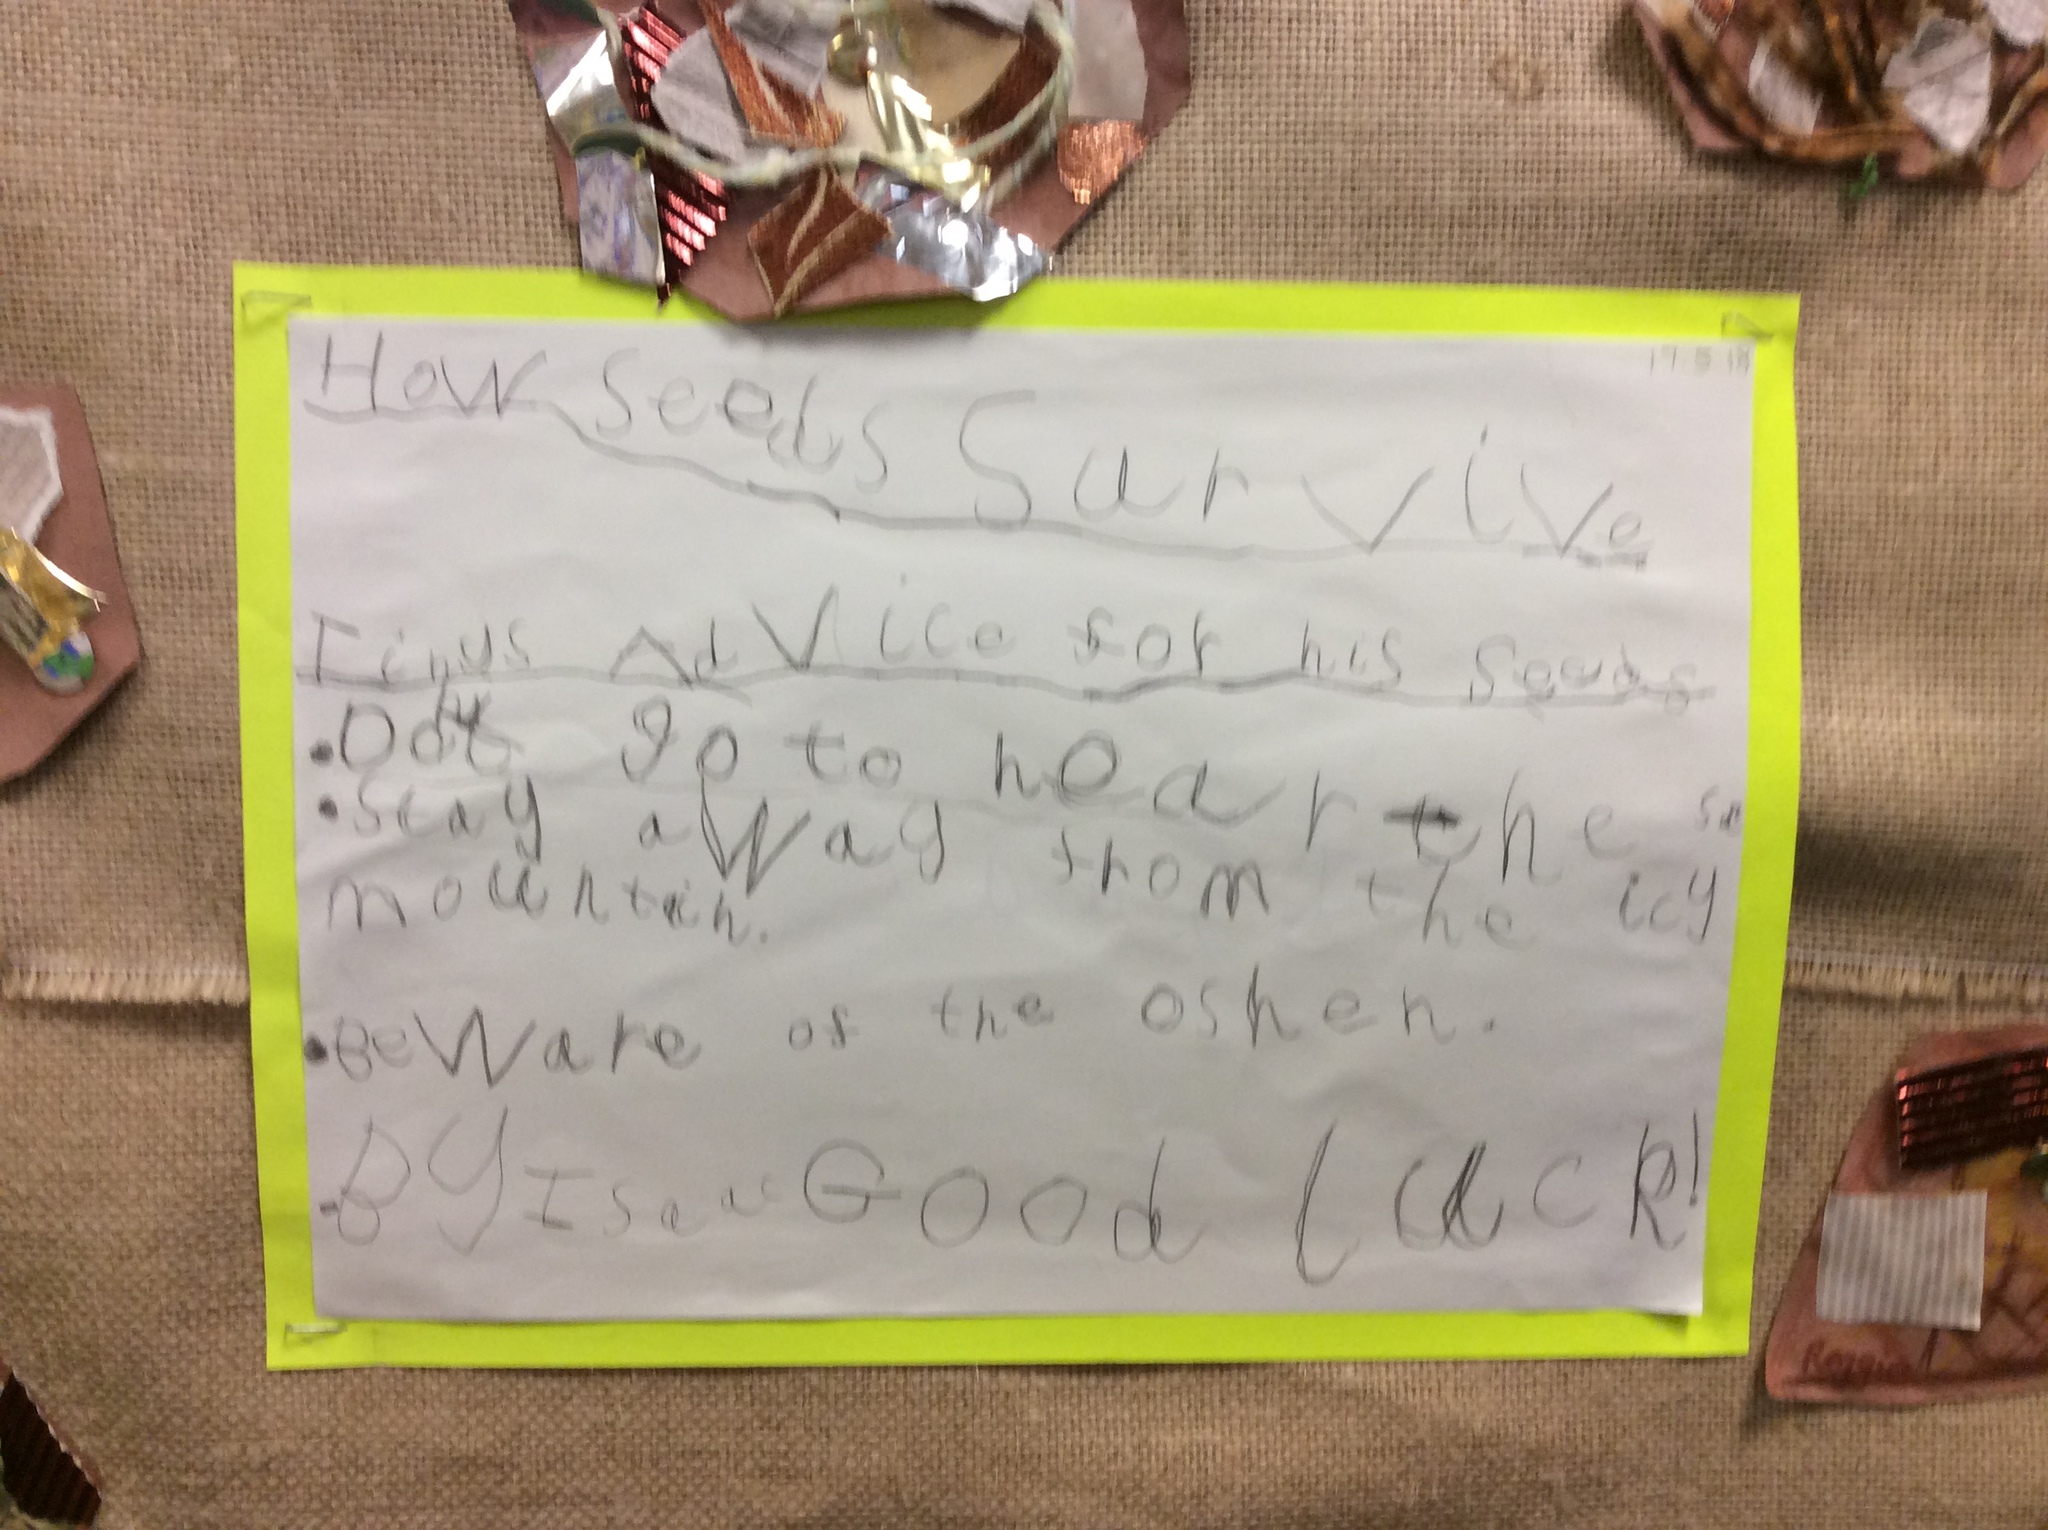 How seeds Survive
17.5.18
Tinys AdVice for his Seeds
• go to near the
• Stay aWay from the icy
mountain.
• BeWare of the oshen.
GOOd lucK!